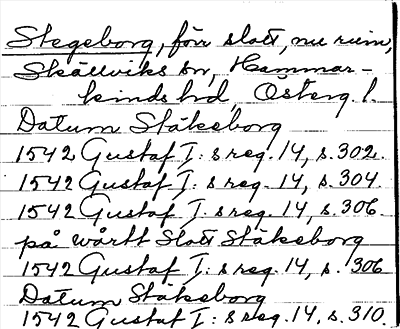 Stegeborg, förr slott, nu ruin,
Skällviks sn, Hammar-
kinds hd, Österg. l.
Datum Stäkeborg
1542 Gustaf I: s reg. 14, s. 302.
1542 Gustaf I: s reg. 14, s. 304
1542 Gustaf I: s reg. 14, s. 306
på wårtt Slott Stäkeborg
1542 Gustaf I: s reg. 14, s. 306
Datum Stäkeborg
1542 Gustaf I: s reg. 14, s. 310.